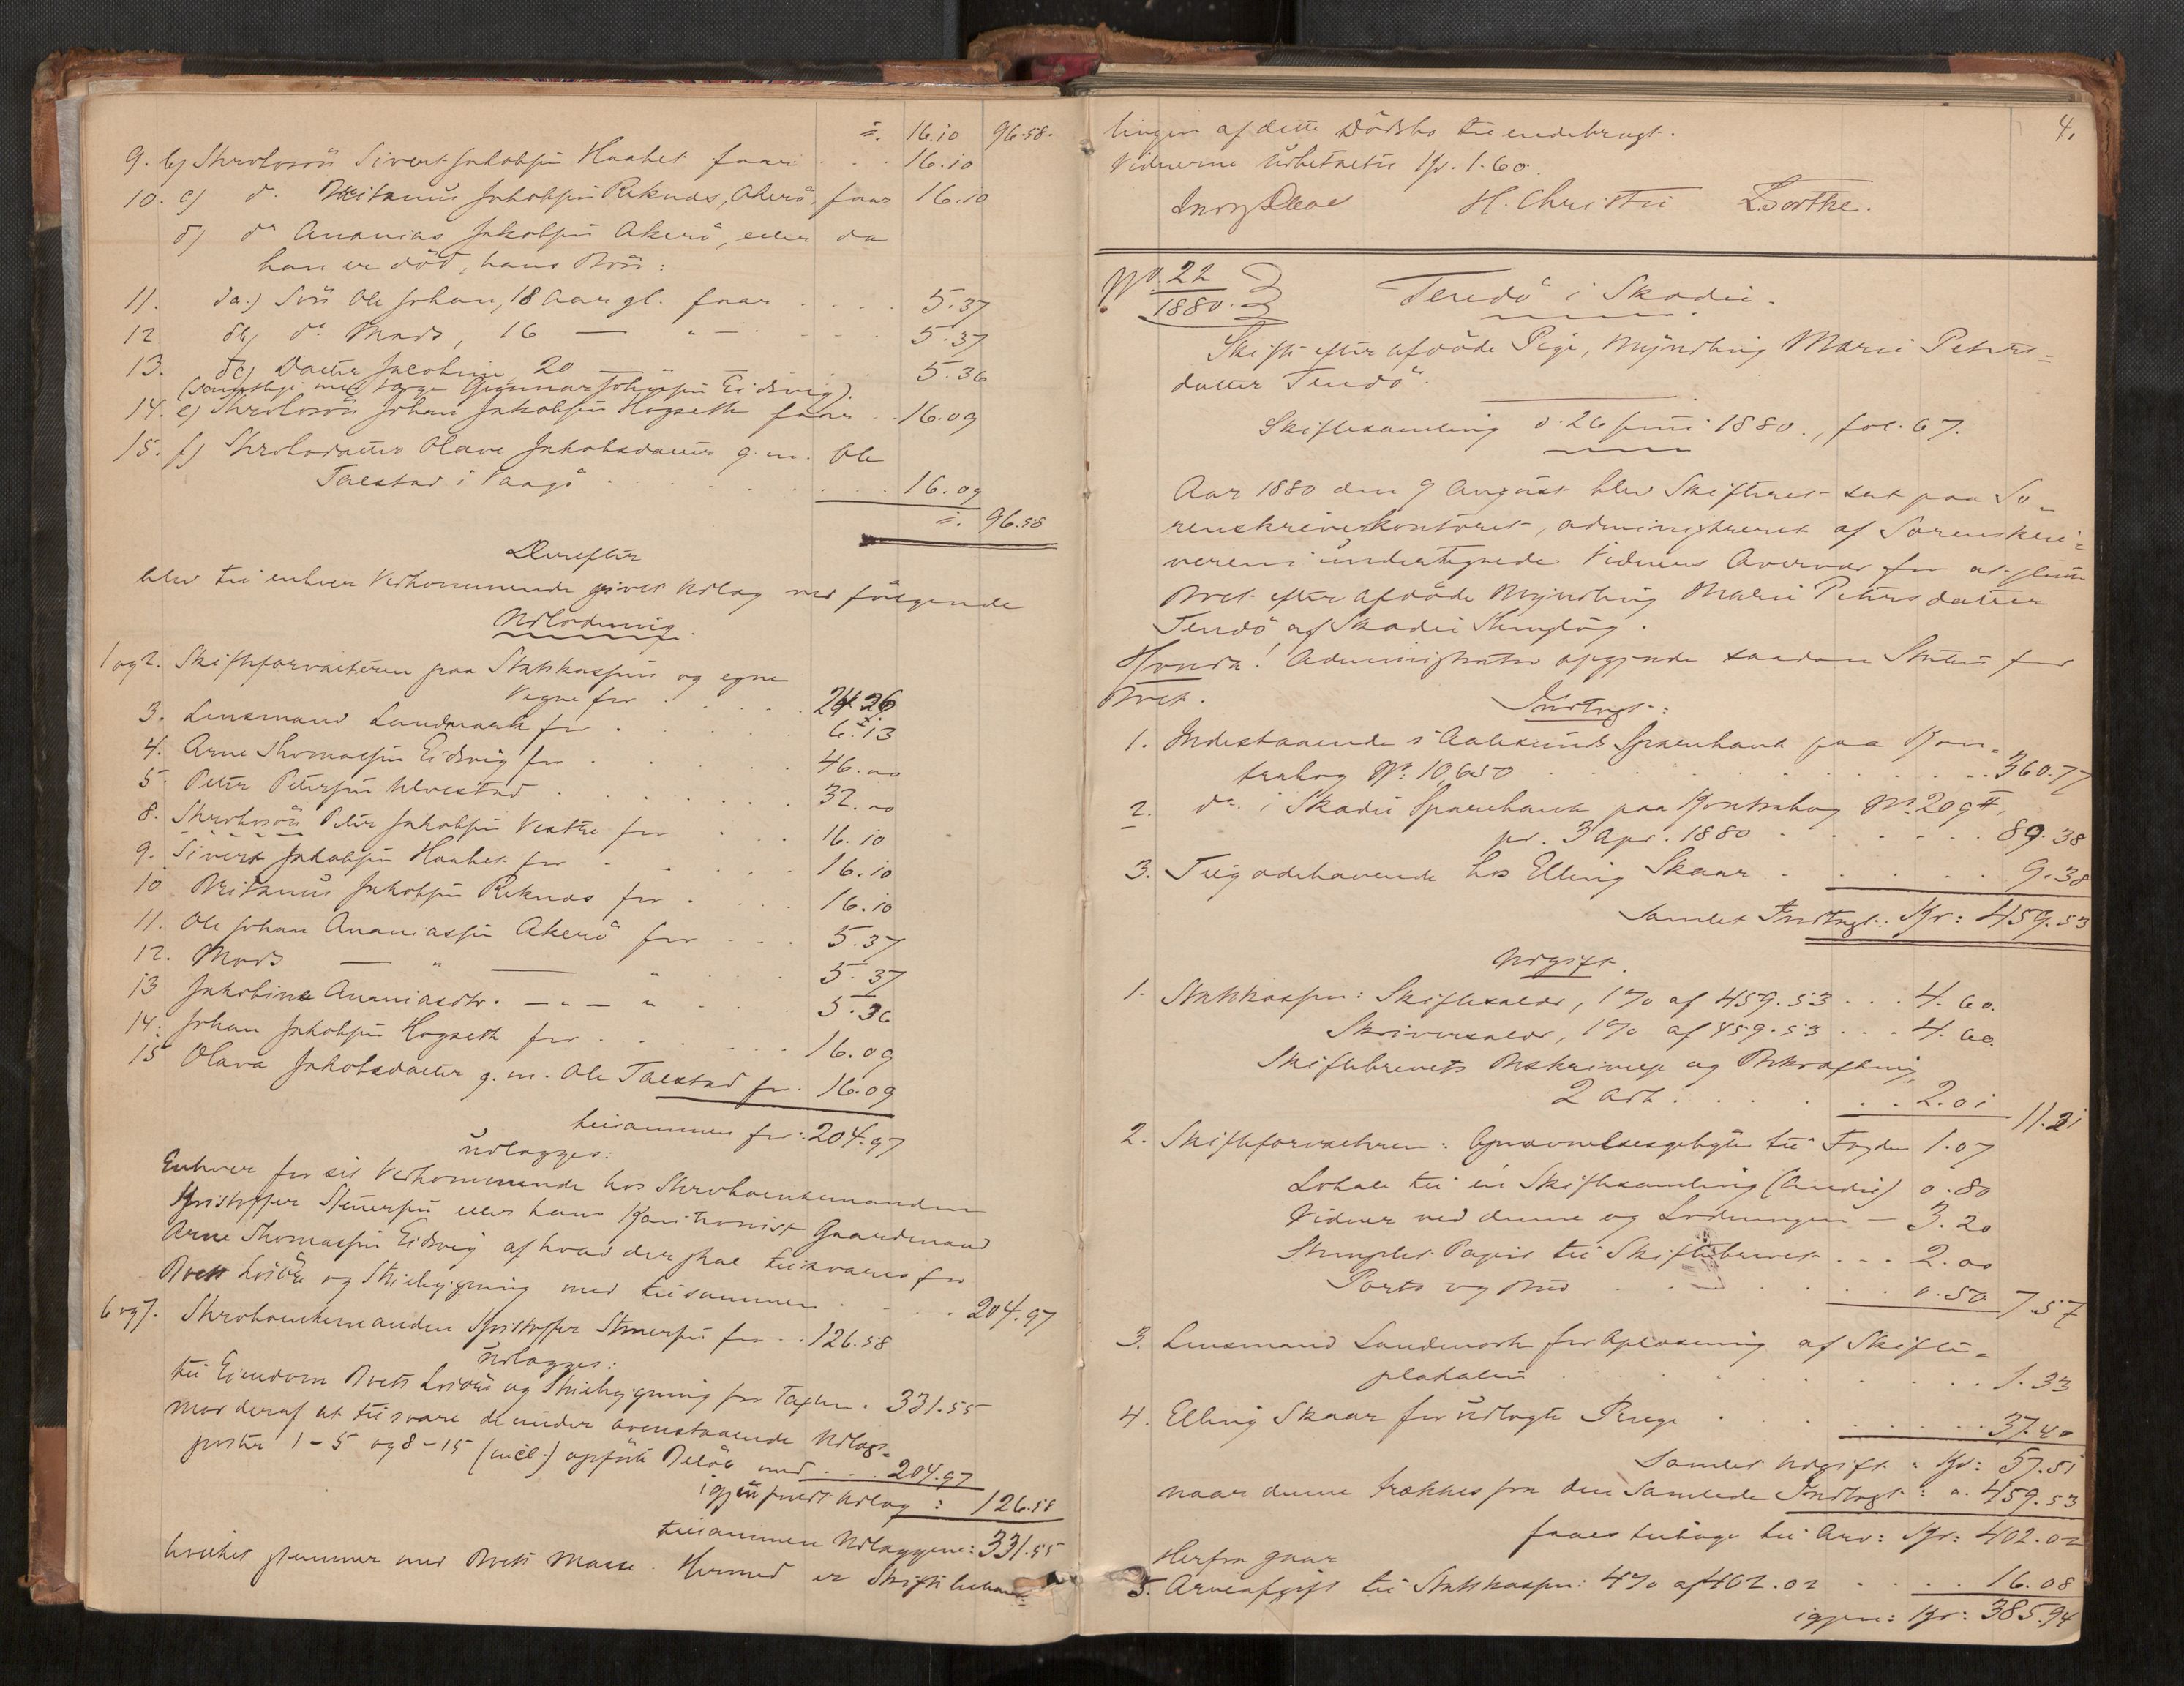 ÷. 16.10 96.58.
9. b) Skrobosön Sivert Jakobsen Haahet faar 16.10
10. c) do. Jakobsen Reknes, Akerö, faar 16.10
d) do Ananias Jakobsen Akerö, eller da
han er död, hans Börn:
11. da.) Sön Ole Johan, 18 Aar gl. faar 5.37
12 db) do Mads, 16 — " — 5.37
13. dc) Datter Jacobine 20 — 5.36
(samtlige med Værge Gunnar Johnsen Eidsvig).
14. e) Skrobosön Johan Jakobsen Hogseth faar 16.09
15. f) Skrobodatter Olave Jakobsdatter g.m. Ole
Talstad i Vaagö 16.09
÷. 96.58
Derefter
blev til enhver Vedkommende givet Udlag ved fölgende
Udlodning.
1 og 2. Skifteforvalteren paa Statskassens og egne
Vegne for 24.26
3. Lensmand Landmark for 6.13
4. Arne Thomassen Eidsvig for 46.00
5. Peter Petersen Ulvestad 32.00
8. Skrobosön Peter Jakobsen Vestre for 16.10
9. Sivert Jakobsen Haahet for 16.10
10 Jakobsen Reknes for 16.10
11. Ole Johan Ananiassen Akerö for 5.37
12. Mads — " — " 5.37
13 Jakobine Ananiasdtr. — " — " 5.36
14. Johan Jakobsen Hogseth for 16.09
15 Olava Jakobsdatter g.m. Ole Talstad for 16.09
tilsammen for: 204.97
udlægges:
Enhver for sit Vedkommende hos Skroboenkemanden
Kristoffer Steuersen eller hans Kautionist Gaardmand
Arne Thomassen Eidsvig af hvad der skal tilsvares for
Boets Lösöre og Stuebygning med tilsammen 204.97
6 og 7. Skroboenkemanden Kristoffer for 126.58
Udlægges:
til Eiendom Boets Lösöre og Stuebygning for Taxten 331.55
mod deraf at tilsvare de under ovenstaaende Udlægs-
poster 1-5 og 8-15 (incl.) opförte Belöb med 204.97
igjen frit Udlæg: 126.58
tilsammen Udlæggene: 331.55
hvilket stemmer med Boets Masse. Hermed er Skiftebehand-
4.
lingen af dette Dödsbo tilendebragt.
Vidnerne udbetaltes Kr. 1.60.
H. Christie
No. 22
1880.
Tendö i Skodie.
Skifte efter afdöde Pige, Myndling Marie Peters-
datter Tendö.
Skiftesamling d. 26 Juni 1880., fol. 67.
Aar 1880 den 9 August blev Skifteret sat paa So-
renskriverkontoret, administreret af Sorenskri-
veren i undertegnede Vidners Overvær for at slutte
Boet efter afdöde Myndling Marie Petersdatter
Tendö af Skodie Thinglag.
Hvorda! Administrator opgjorde saadan Status for
Boet.
Indtægt:
1. Indestaaende i Aalesunds Sparebank paa Kon-
trabog No: 10,650 360.77
2. do. i Skodie Sparebank paa Kontrabog No 209
pr. 3 Apr. 1880 89.38
3. Tilgodehavende hos Elling Skaar 9.38
Samlet Indtægt: Kr: 459.53
Udgift.
1. Statskassen: Skiftesalær, 1% af 459.53 4.60.
Skriversalær, 1% af 459.53 4.60.
Skiftebrevets Beskrivelse og Bekræftning,
2 Ark 2.01 11.21
2. Skifteforvalteren: Opnævnelsesgebyhr til Fogden 1.07
Lokale til en Skiftesamling 0.80
Vidner ved denne og Lodningen — 3.20
Stemplet Papir til Skiftebrevet 2.00
Porto og Bud 0.50 7.57
3. Lensmand Landmark for Oplæsning af Skifte-
plakaten 1.33
4. Elling Skaar for udlagte Penge 37.40
Samlet Udgift: Kr: 57.51
naar denne trækkes fra den samlede Indtægt: " 459.53
faaes tilbage til Arv: Kr: 402.02
Herfra gaar
5. Arveafgift til Statskassen: 4% af 402.02 16.08
igjen: Kr: 385.94